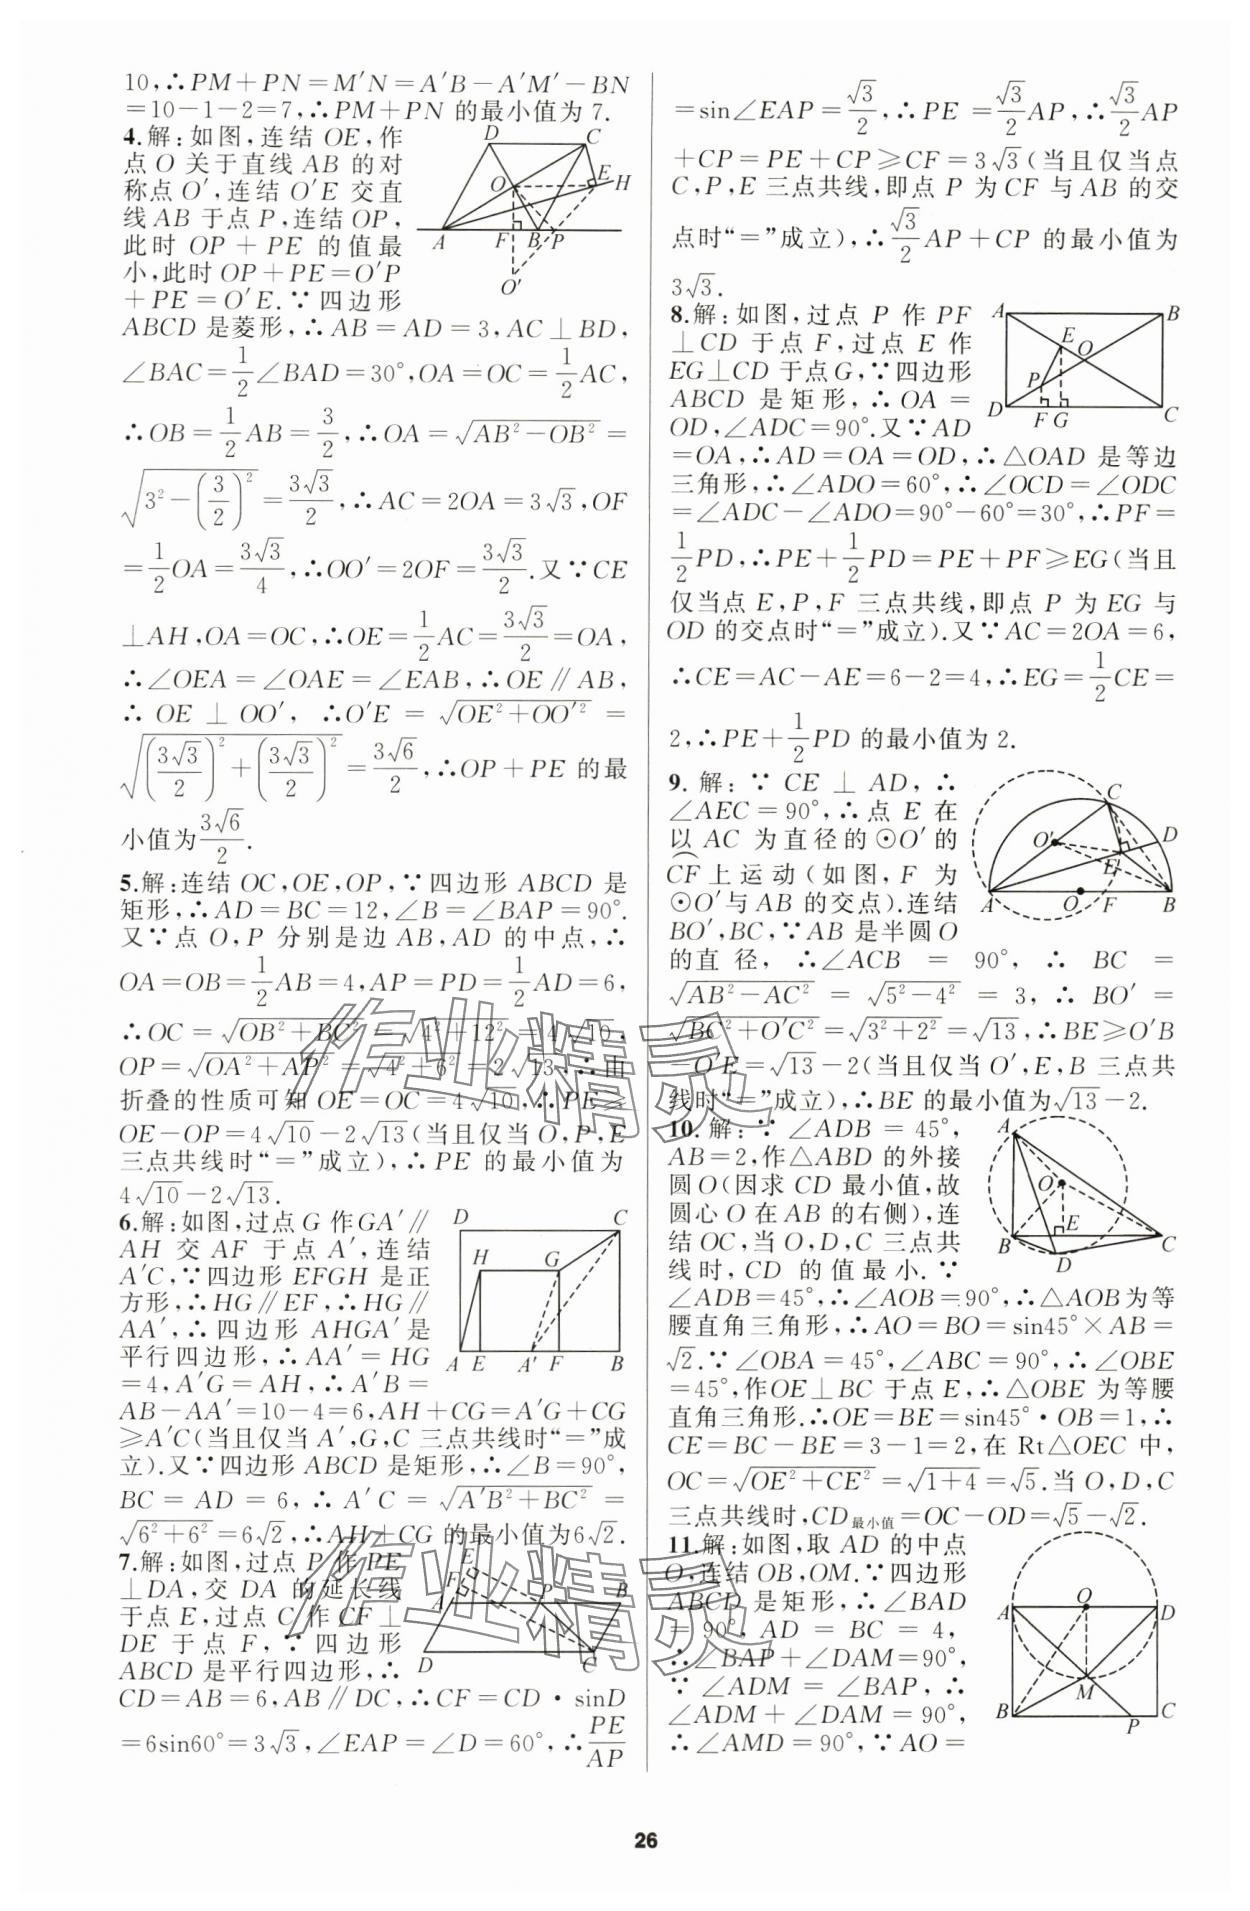 10,∴PM+PN=M′N=A′B-A′M′-BN
=10-1-2=7,∴PM+PN 的最小值为 7.
4.解:如图,连结 OE,作
点 O 关于直线 AB 的对
称点 O′,连结 O′E 交直
线 AB 于点 P,连结 OP,
此时 OP+PE 的值最
小,此时 OP+PE=O′P
+PE=O′E.∵四边形
ABCD 是菱形,∴AB=AD=3,AC⊥BD,
∠BAC=1/2∠BAD=30°,OA=OC=1/2AC,
∴OB=1/2AB=3/2,∴OA=√(AB²-OB²)=
√(3²-(3/2)²)=3√3/2,∴AC=2OA=3√3,OF
=1/2OA=3√3/4,∴OO′=2OF=3√3/2.又∵CE
⊥AH,OA=OC,∴OE=1/2AC=3√3/2=OA,
∴∠OEA=∠OAE=∠EAB,∴OE∥AB,
∴OE⊥OO′,∴O′E=√(OE²+OO′²)=
√((3√3/2)²+(3√3/2)²)=3√6/2,∴OP+PE 的最
小值为3√6/2.
D
C
O
E
H
A
F
B
P
O′
5.解:连结 OC,OE,OP,∵四边形 ABCD 是
矩形,∴AD=BC=12,∠B=∠BAP=90°.
又∵点 O,P 分别是边 AB,AD 的中点,∴
OA=OB=1/2AB=4,AP=PD=1/2AD=6,
∴OC=√(OB²+BC²)=√(4²+12²)=4√10,
OP=√(OA²+AP²)=√(4²+6²)=2√13,∴由
折叠的性质可知 OE=OC=4√10,∴PE≥
OE-OP=4√10-2√13(当且仅当 O,P,E
三点共线时“=”成立),∴PE 的最小值为
4√10-2√13.
6.解:如图,过点 G 作GA′∥
AH 交 AF 于点 A′,连结
A′C,∵四边形 EFGH 是正
方形,∴HG∥EF,∴HG∥
AA′,∴四边形 AHGA′是
平行四边形,∴AA′=HG
=4,A′G=AH,∴A′B=
AB-AA′=10-4=6,AH+CG=A′G+CG
≥A′C(当且仅当 A′,G,C 三点共线时“=”成
立).又∵四边形 ABCD 是矩形,∴∠B=90°,
BC=AD=6,∴A′C=√(A′B²+BC²)=
√(6²+6²)=6√2,∴AH+CG 的最小值为6√2.
D
C
H
G
A
E
A′
F
B
7.解:如图,过点 P 作 PE
⊥DA,交 DA 的延长线
于点 E,过点 C 作 CF⊥
DE 于点 F,∵四边形
ABCD 是平行四边形,∴
CD=AB=6,AB∥DC,∴CF=CD·sinD
=6sin60°=3√3,∠EAP=∠D=60°,∴PE/AP
E
F
A
P
B
D
C
=sin∠EAP=√3/2,∴PE=√3/2AP,∴√3/2AP
+CP=PE+CP≥CF=3√3(当且仅当点
C,P,E 三点共线,即点 P 为 CF 与 AB 的交
点时“=”成立),∴√3/2AP+CP 的最小值为
3√3.
8.解:如图,过点 P 作 PF
⊥CD 于点 F,过点 E 作
EG⊥CD 于点G,∵四边形
ABCD 是矩形,∴OA=
OD,∠ADC=90°.又∵AD
=OA,∴AD=OA=OD,∴△OAD 是等边
三角形,∴∠ADO=60°,∴∠OCD=∠ODC
=∠ADC-∠ADO=90°-60°=30°,∴PF=
1/2PD,∴PE+1/2PD=PE+PF≥EG(当且
仅当点 E,P,F 三点共线,即点 P 为 EG 与
OD 的交点时“=”成立).又∵AC=2OA=6,
∴CE=AC-AE=6-2=4,∴EG=1/2CE=
2,∴PE+1/2PD 的最小值为 2.
A
B
E
O
P
D
F
G
C
9.解:∵CE⊥AD,∴
∠AEC=90°,∴点 E 在
以 AC 为直径的⊙O′的
⌒CF上运动(如图,F 为
⊙O′与 AB 的交点).连结
BO′,BC,∵AB 是半圆O
的直径,∴∠ACB=90°,∴BC=
√(AB²-AC²)=√(5²-4²)=3,∴BO′=
√(BC²+O′C²)=√(3²+2²)=√13,∴BE≥O′B
-O′E=√13-2(当且仅当 O′,E,B 三点共
线时“=”成立),∴BE 的最小值为√13-2.
C
D
O′
E
A
O
F
B
10.解:∵∠ADB=45°,
AB=2,作△ABD 的外接
圆O(因求 CD 最小值,故
圆心 O 在 AB 的右侧),连
结OC,当 O,D,C 三点共
线时,CD 的值最小.∵
∠ADB=45°,∴∠AOB=90°,∴△AOB为等
腰直角三角形,∴AO=BO=sin45°×AB=
√2.∵∠OBA=45°,∠ABC=90°,∴∠OBE
=45°,作OE⊥BC 于点 E,∴△OBE 为等腰
直角三角形.∴OE=BE=sin45°·OB=1,∴
CE=BC-BE=3-1=2,在 Rt△OEC 中,
OC=√(OE²+CE²)=√(1+4)=√5.当 O,D,C
三点共线时,CD最小值=OC-OD=√5-√2.
A
O
E
B
D
C
11.解:如图,取 AD 的中点
O,连结 OB,OM.∵四边形
ABCD 是矩形,∴∠BAD
=90°,AD=BC=4,
∴∠BAP+∠DAM=90°,
∵∠ADM=∠BAP,∴
∠ADM+∠DAM=90°,
∴∠AMD=90°,∵AO=
A
O
D
M
B
P
C
作业精灵
作业精灵
26